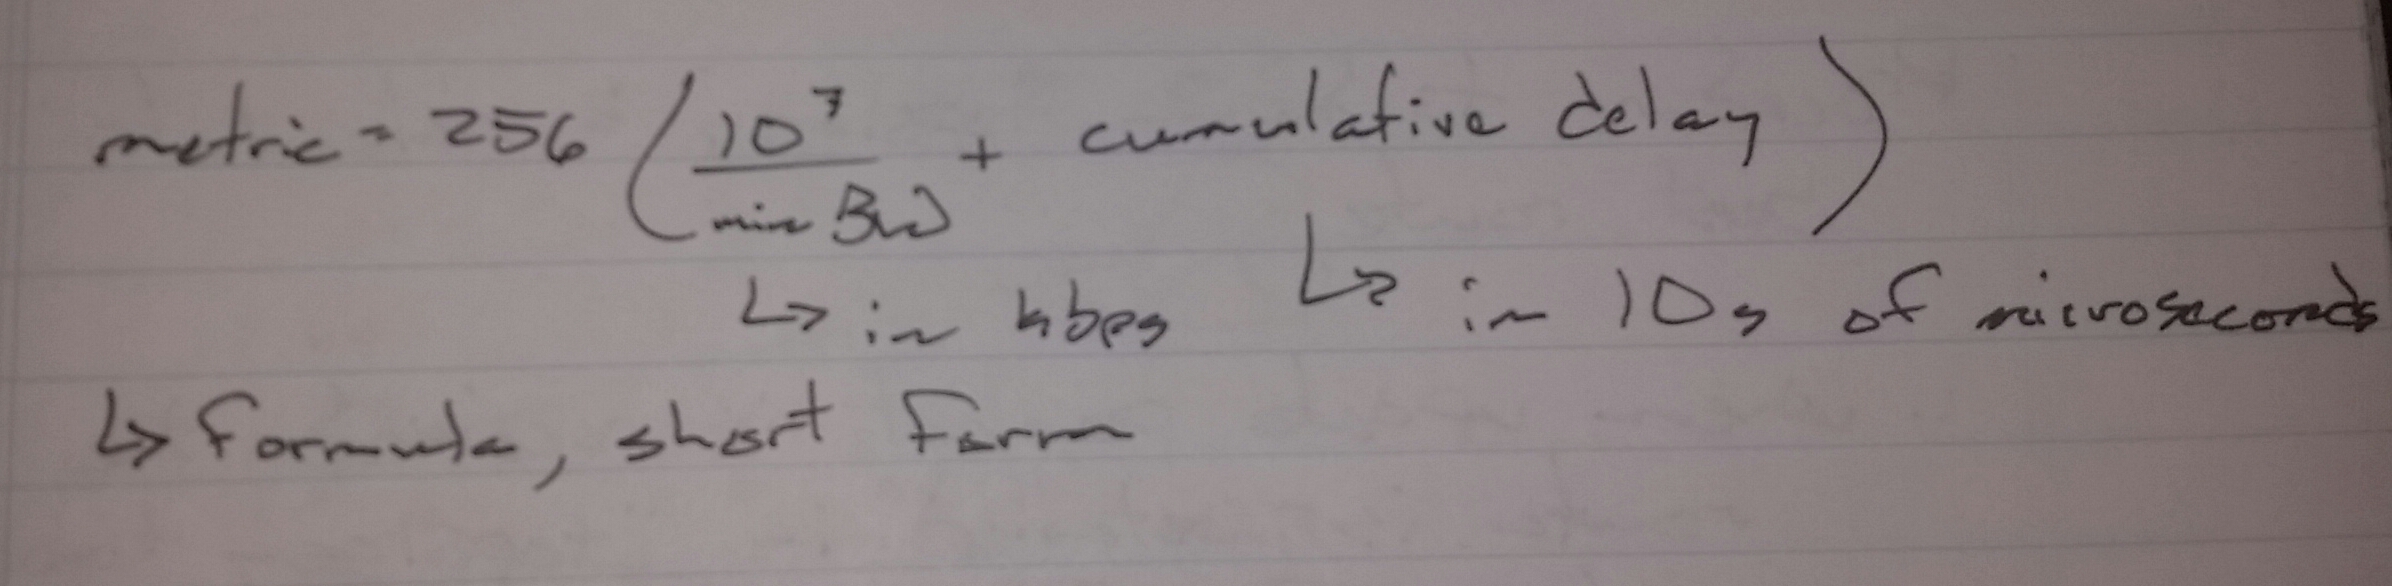 metric = 256 ( 10^7 / min BW + cumulative delay )
↳ in kbps ↳ in 10s of microseconds
↳ formula, short form